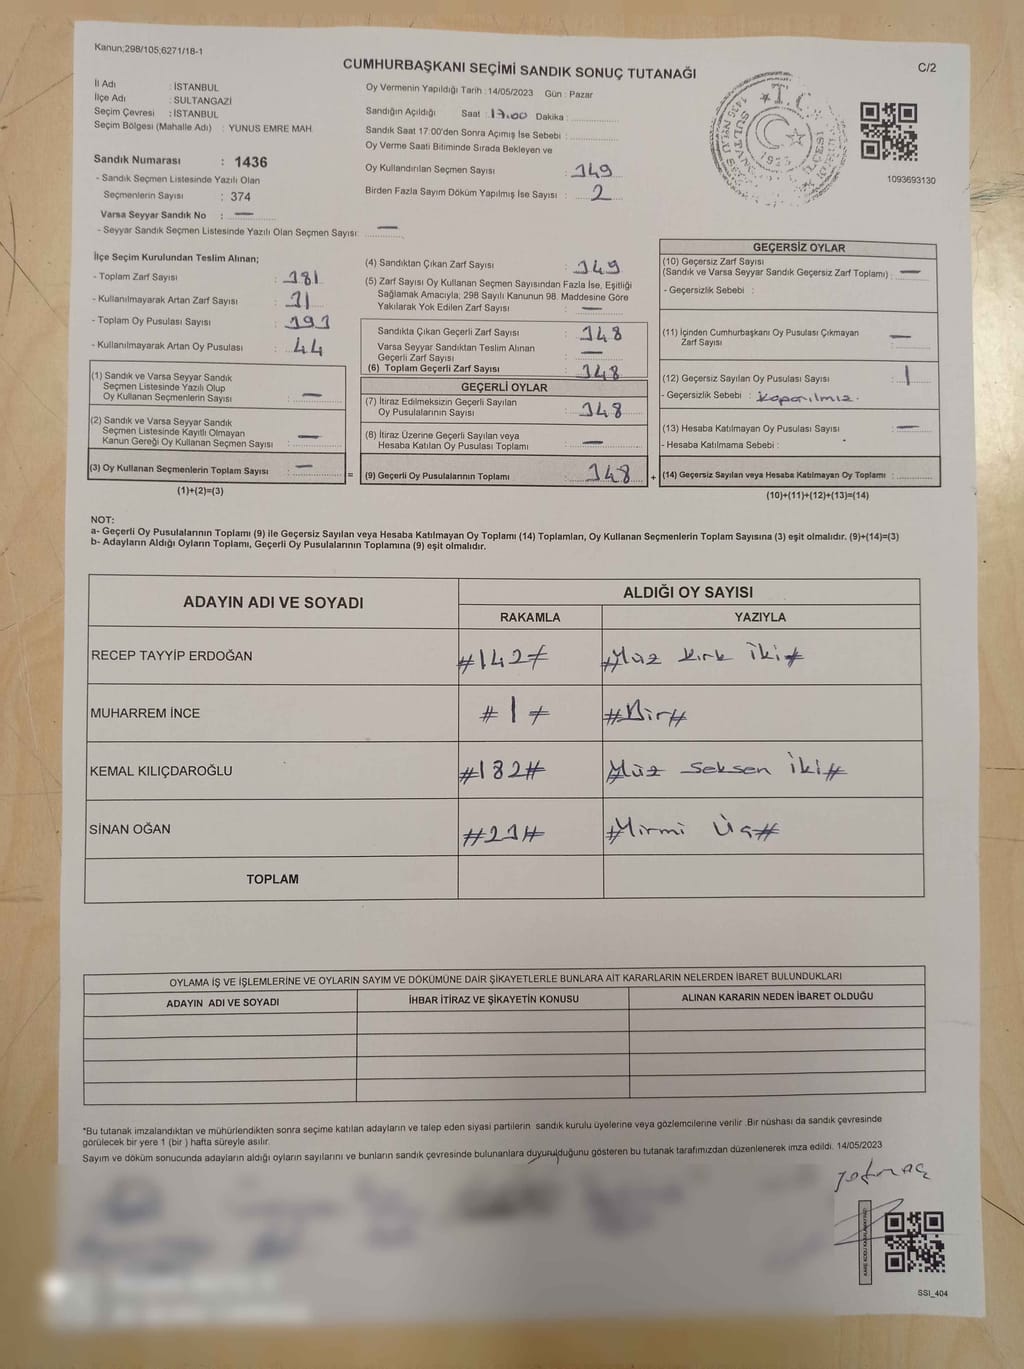 Kanun;298/105;6271/18-1
C/2
CUMHURBAŞKANI SEÇİMİ SANDIK SONUÇ TUTANAĞI
İl Adı : İSTANBUL
İlçe Adı : SULTANGAZİ
Seçim Çevresi : İSTANBUL
Seçim Bölgesi (Mahalle Adı) : YUNUS EMRE MAH.
Sandık Numarası : 1436
- Sandık Seçmen Listesinde Yazılı Olan
Seçmenlerin Sayısı : 374
Varsa Seyyar Sandık No : —
- Seyyar Sandık Seçmen Listesinde Yazılı Olan Seçmen Sayısı: —
Oy Vermenin Yapıldığı Tarih : 14/05/2023 Gün : Pazar
Sandığın Açıldığı Saat : 17.00 Dakika :
Sandık Saat 17:00'den Sonra Açımış İse Sebebi :
Oy Verme Saati Bitiminde Sırada Bekleyen ve
Oy Kullandırılan Seçmen Sayısı : 349
Birden Fazla Sayım Döküm Yapılmış İse Sayısı : 2
1093693130
İlçe Seçim Kurulundan Teslim Alınan;
- Toplam Zarf Sayısı : 381
- Kullanılmayarak Artan Zarf Sayısı : 31
- Toplam Oy Pusulası Sayısı : 393
- Kullanılmayarak Artan Oy Pusulası : 44
(1) Sandık ve Varsa Seyyar Sandık
Seçmen Listesinde Yazılı Olup
Oy Kullanan Seçmenlerin Sayısı : —
(2) Sandık ve Varsa Seyyar Sandık
Seçmen Listesinde Kayıtlı Olmayan
Kanun Gereği Oy Kullanan Seçmen Sayısı : —
(3) Oy Kullanan Seçmenlerin Toplam Sayısı : — =
(1)+(2)=(3)
(4) Sandıktan Çıkan Zarf Sayısı : 349
(5) Zarf Sayısı Oy Kullanan Seçmen Sayısından Fazla İse, Eşitliği
Sağlamak Amacıyla; 298 Sayılı Kanunun 98. Maddesine Göre
Yakılarak Yok Edilen Zarf Sayısı : —
Sandıkta Çıkan Geçerli Zarf Sayısı : 348
Varsa Seyyar Sandıktan Teslim Alınan
Geçerli Zarf Sayısı : —
(6) Toplam Geçerli Zarf Sayısı : 348
GEÇERLİ OYLAR
(7) İtiraz Edilmeksizin Geçerli Sayılan
Oy Pusulalarının Sayısı : 348
(8) İtiraz Üzerine Geçerli Sayılan veya
Hesaba Katılan Oy Pusulası Toplamı : —
(9) Geçerli Oy Pusulalarının Toplamı : 348 +
GEÇERSİZ OYLAR
(10) Geçersiz Zarf Sayısı
(Sandık ve Varsa Seyyar Sandık Geçersiz Zarf Toplamı) : —
- Geçersizlik Sebebi :
(11) İçinden Cumhurbaşkanı Oy Pusulası Çıkmayan
Zarf Sayısı : —
(12) Geçersiz Sayılan Oy Pusulası Sayısı : 1
- Geçersizlik Sebebi :
(13) Hesaba Katılmayan Oy Pusulası Sayısı : —
- Hesaba Katılmama Sebebi :
(14) Geçersiz Sayılan veya Hesaba Katılmayan Oy Toplamı :
(10)+(11)+(12)+(13)=(14)
NOT:
a- Geçerli Oy Pusulalarının Toplamı (9) ile Geçersiz Sayılan veya Hesaba Katılmayan Oy Toplamı (14) Toplamları, Oy Kullanan Seçmenlerin Toplam Sayısına (3) eşit olmalıdır. (9)+(14)=(3)
b- Adayların Aldığı Oyların Toplamı, Geçerli Oy Pusulalarının Toplamına (9) eşit olmalıdır.
ADAYIN ADI VE SOYADI
ALDIĞI OY SAYISI
RAKAMLA YAZIYLA
RECEP TAYYİP ERDOĞAN #142# #Yüz kırk iki#
MUHARREM İNCE #1# #Bir#
KEMAL KILIÇDAROĞLU #182# #Yüz seksen iki#
SİNAN OĞAN #23# #Yirmi Üç#
TOPLAM
OYLAMA İŞ VE İŞLEMLERİNE VE OYLARIN SAYIM VE DÖKÜMÜNE DAİR ŞİKAYETLERLE BUNLARA AİT KARARLARIN NELERDEN İBARET BULUNDUKLARI
ADAYIN ADI VE SOYADI İHBAR İTİRAZ VE ŞİKAYETİN KONUSU ALINAN KARARIN NEDEN İBARET OLDUĞU
*Bu tutanak imzalandıktan ve mühürlendikten sonra seçime katılan adayların ve talep eden siyasi partilerin sandık kurulu üyelerine veya gözlemcilerine verilir. Bir nüshası da sandık çevresinde
görülecek bir yere 1 (bir ) hafta süreyle asılır.
Sayım ve döküm sonucunda adayların aldığı oyların sayılarını ve bunların sandık çevresinde bulunanlara duyurulduğunu gösteren bu tutanak tarafımızdan düzenlenerek imza edildi. 14/05/2023
SSI_404